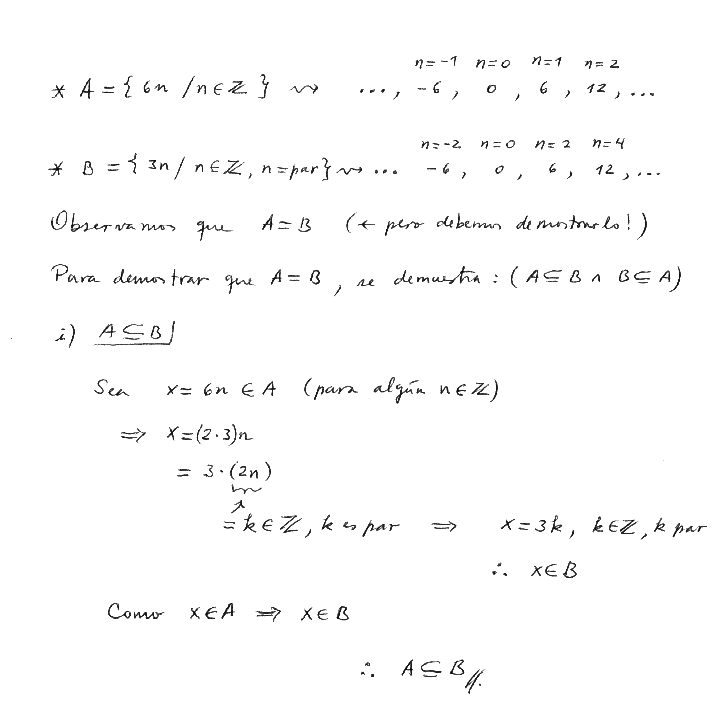 n=-1 n=0 n=1 n=2
* A = { 6n / n ∈ ℤ } ⇝ ..., -6, 0, 6, 12, ...
n=-2 n=0 n=2 n=4
* B = { 3n / n ∈ ℤ, n=par } ⇝ ... -6, 0, 6, 12, ...
Observamos que A=B (← pero debemos demostrarlo!)
Para demostrar que A=B, se demuestra: (A⊆B ∧ B⊆A)
i) A⊆B
Sea x=6n ∈ A (para algún n∈ℤ)
⇒ x=(2·3)n
= 3·(2n)
= k∈ℤ, k es par ⇒ x=3k, k∈ℤ, k par
∴ x∈B
Como x∈A ⇒ x∈B
∴ A⊆B //.